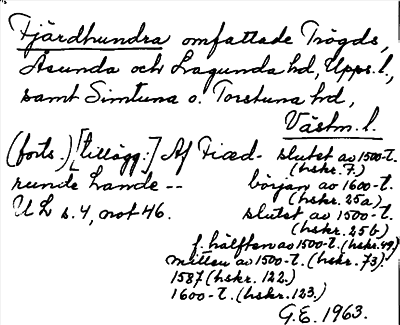 Fjärdhundra omfattade Trögds,
Åsunda och Lagunda hd, Upps. l.,
samt Simtuna o. Torstuna hd,
Västm. l.
(forts.) [tillägg:] Af Fiæd-
runde Lande --
UL s. 4, not 46.
slutet av 1500-t.
(hskr. 7.)
början av 1600-t.
(hskr. 25a)
slutet av 1500-t.
(hskr. 25b)
f. hälften av 1500-t. (hskr. 49)
mitten av 1500-t. (hskr. 73).
1587 (hskr. 122.)
1600-t. (hskr. 123.)
G.E. 1963.